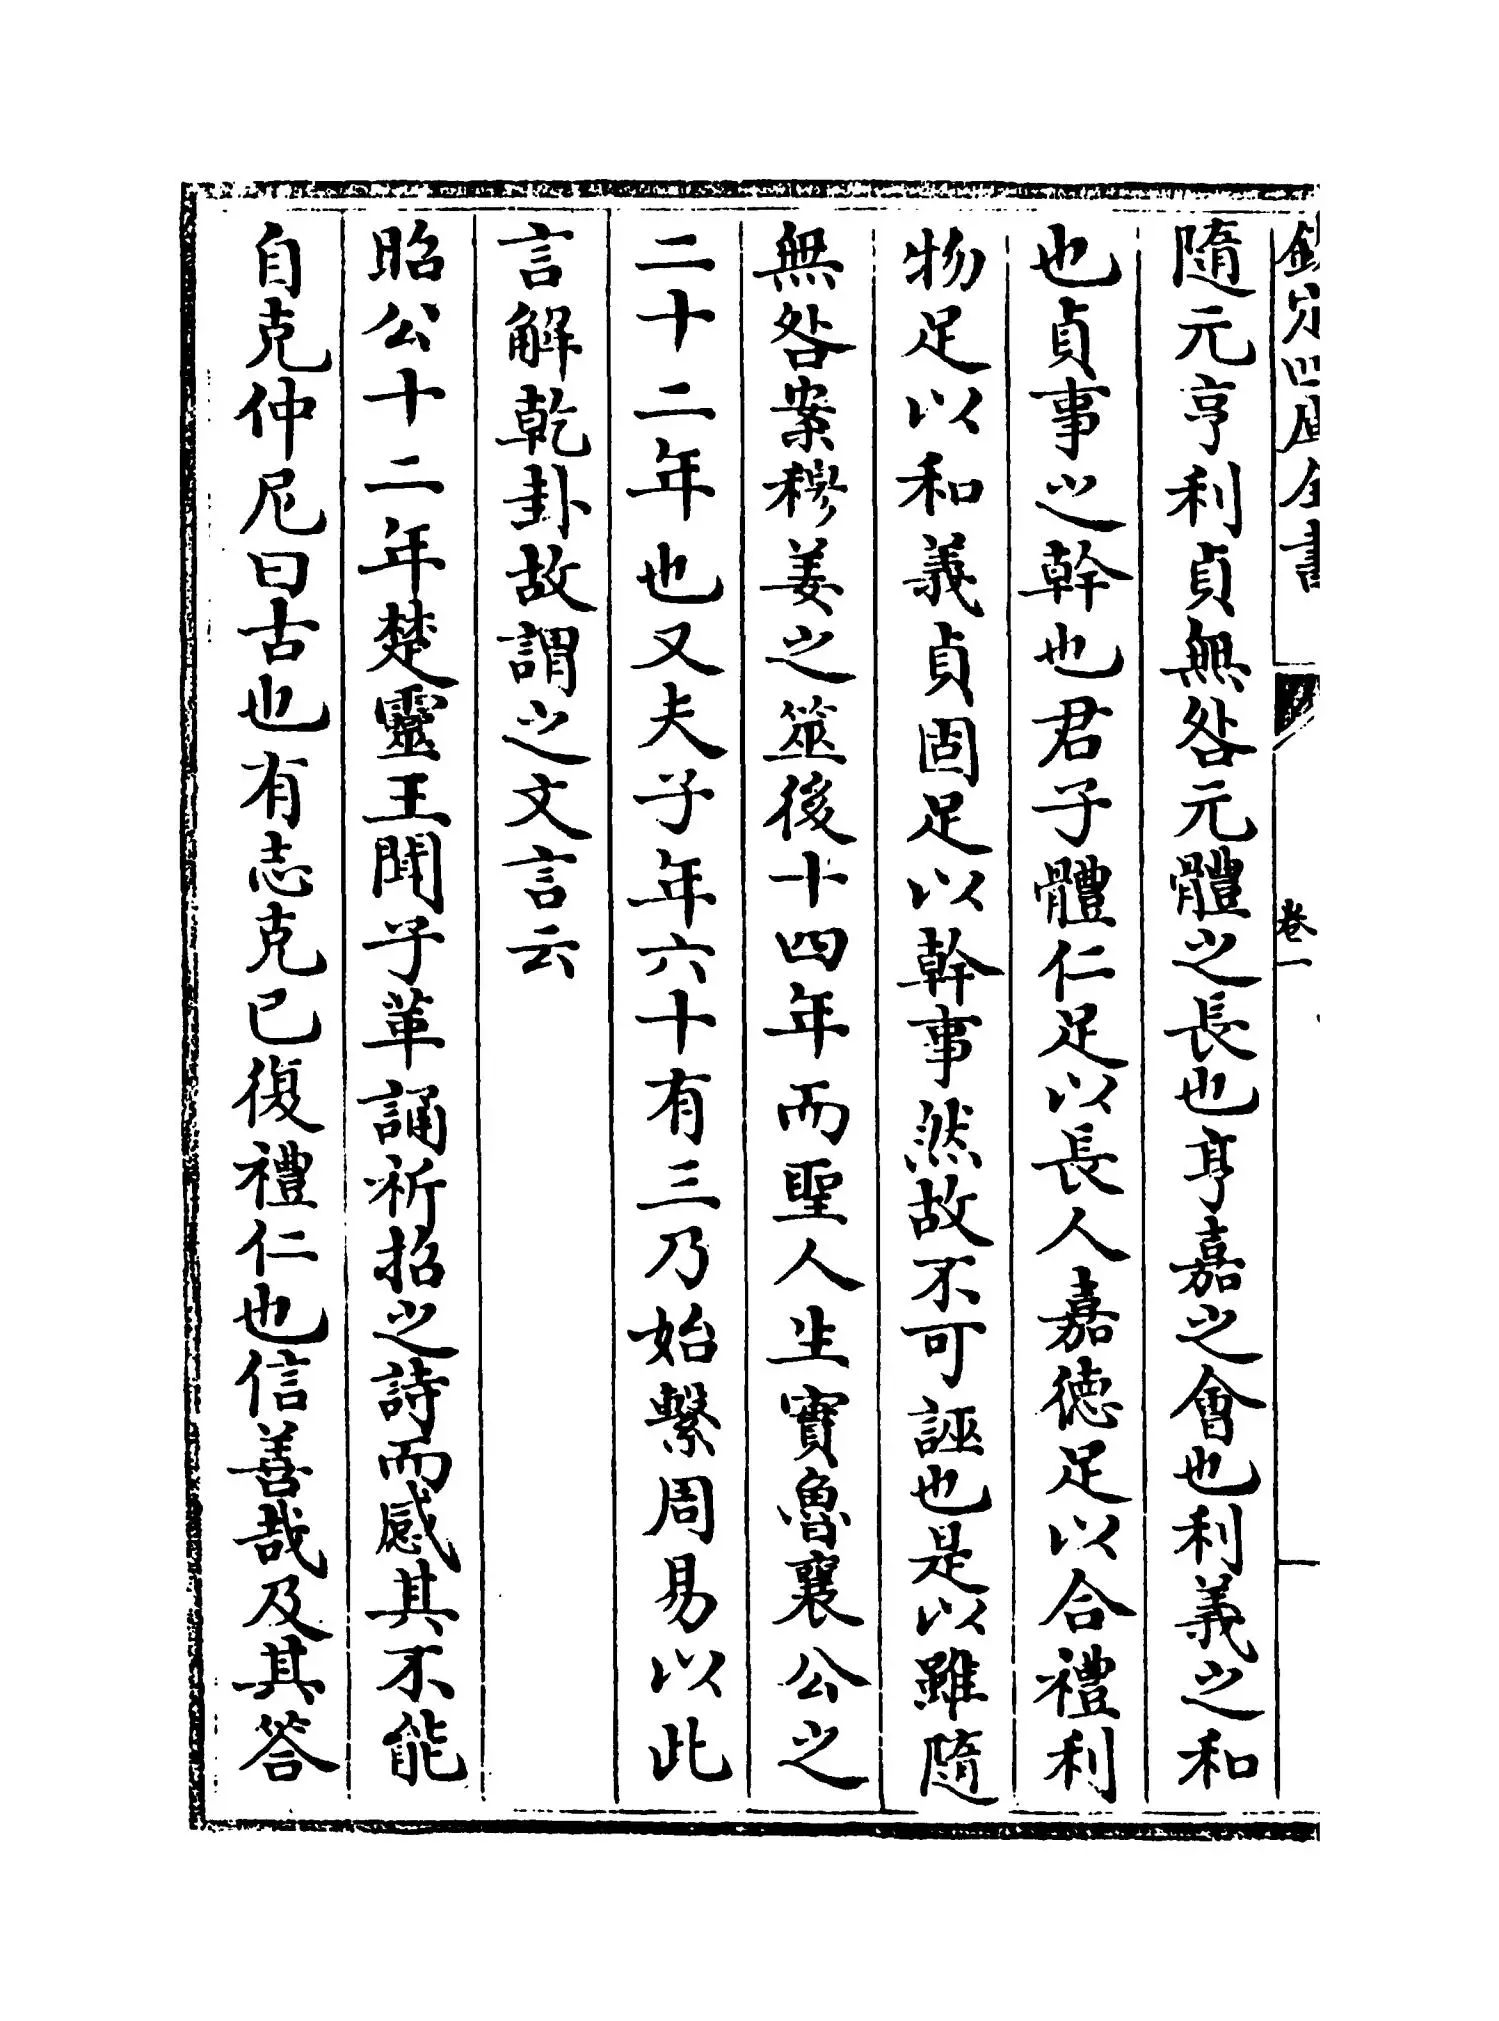 欽定四庫全書
卷一
隨元亨利貞無咎元體之長也亨嘉之會也利義之和
也貞事之幹也君子體仁足以長人嘉德足以合禮利
物足以和義貞固足以幹事然故不可誣也是以雖隨
無咎案穆姜之筮後十四年而聖人生實魯襄公之
二十二年也又夫子年六十有三乃始繫周易以此
言解乾卦故謂之文言云
昭公十二年楚靈王聞子革誦祈招之詩而感其不能
自克仲尼曰古也有志克已復禮仁也信善哉及其答